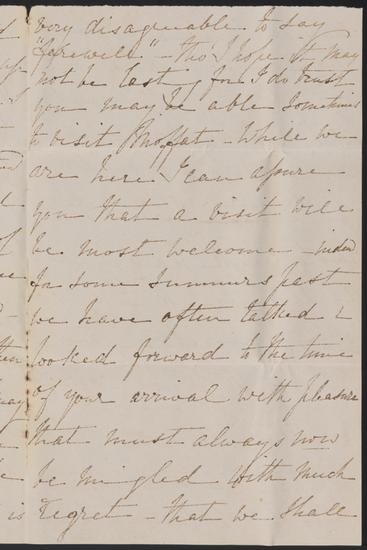 very disagreeable to say
"farewell" - tho' I hope it may
not be last, for I do trust
you may be able sometimes
to visit Moffat - While we
are here I can assure
you that a visit will
be most welcome - indeed
for some summers past
we have often talked &
looked forward to the time
of your arrival with pleasure
that must always now
be mingled with much
is regret - that we shall